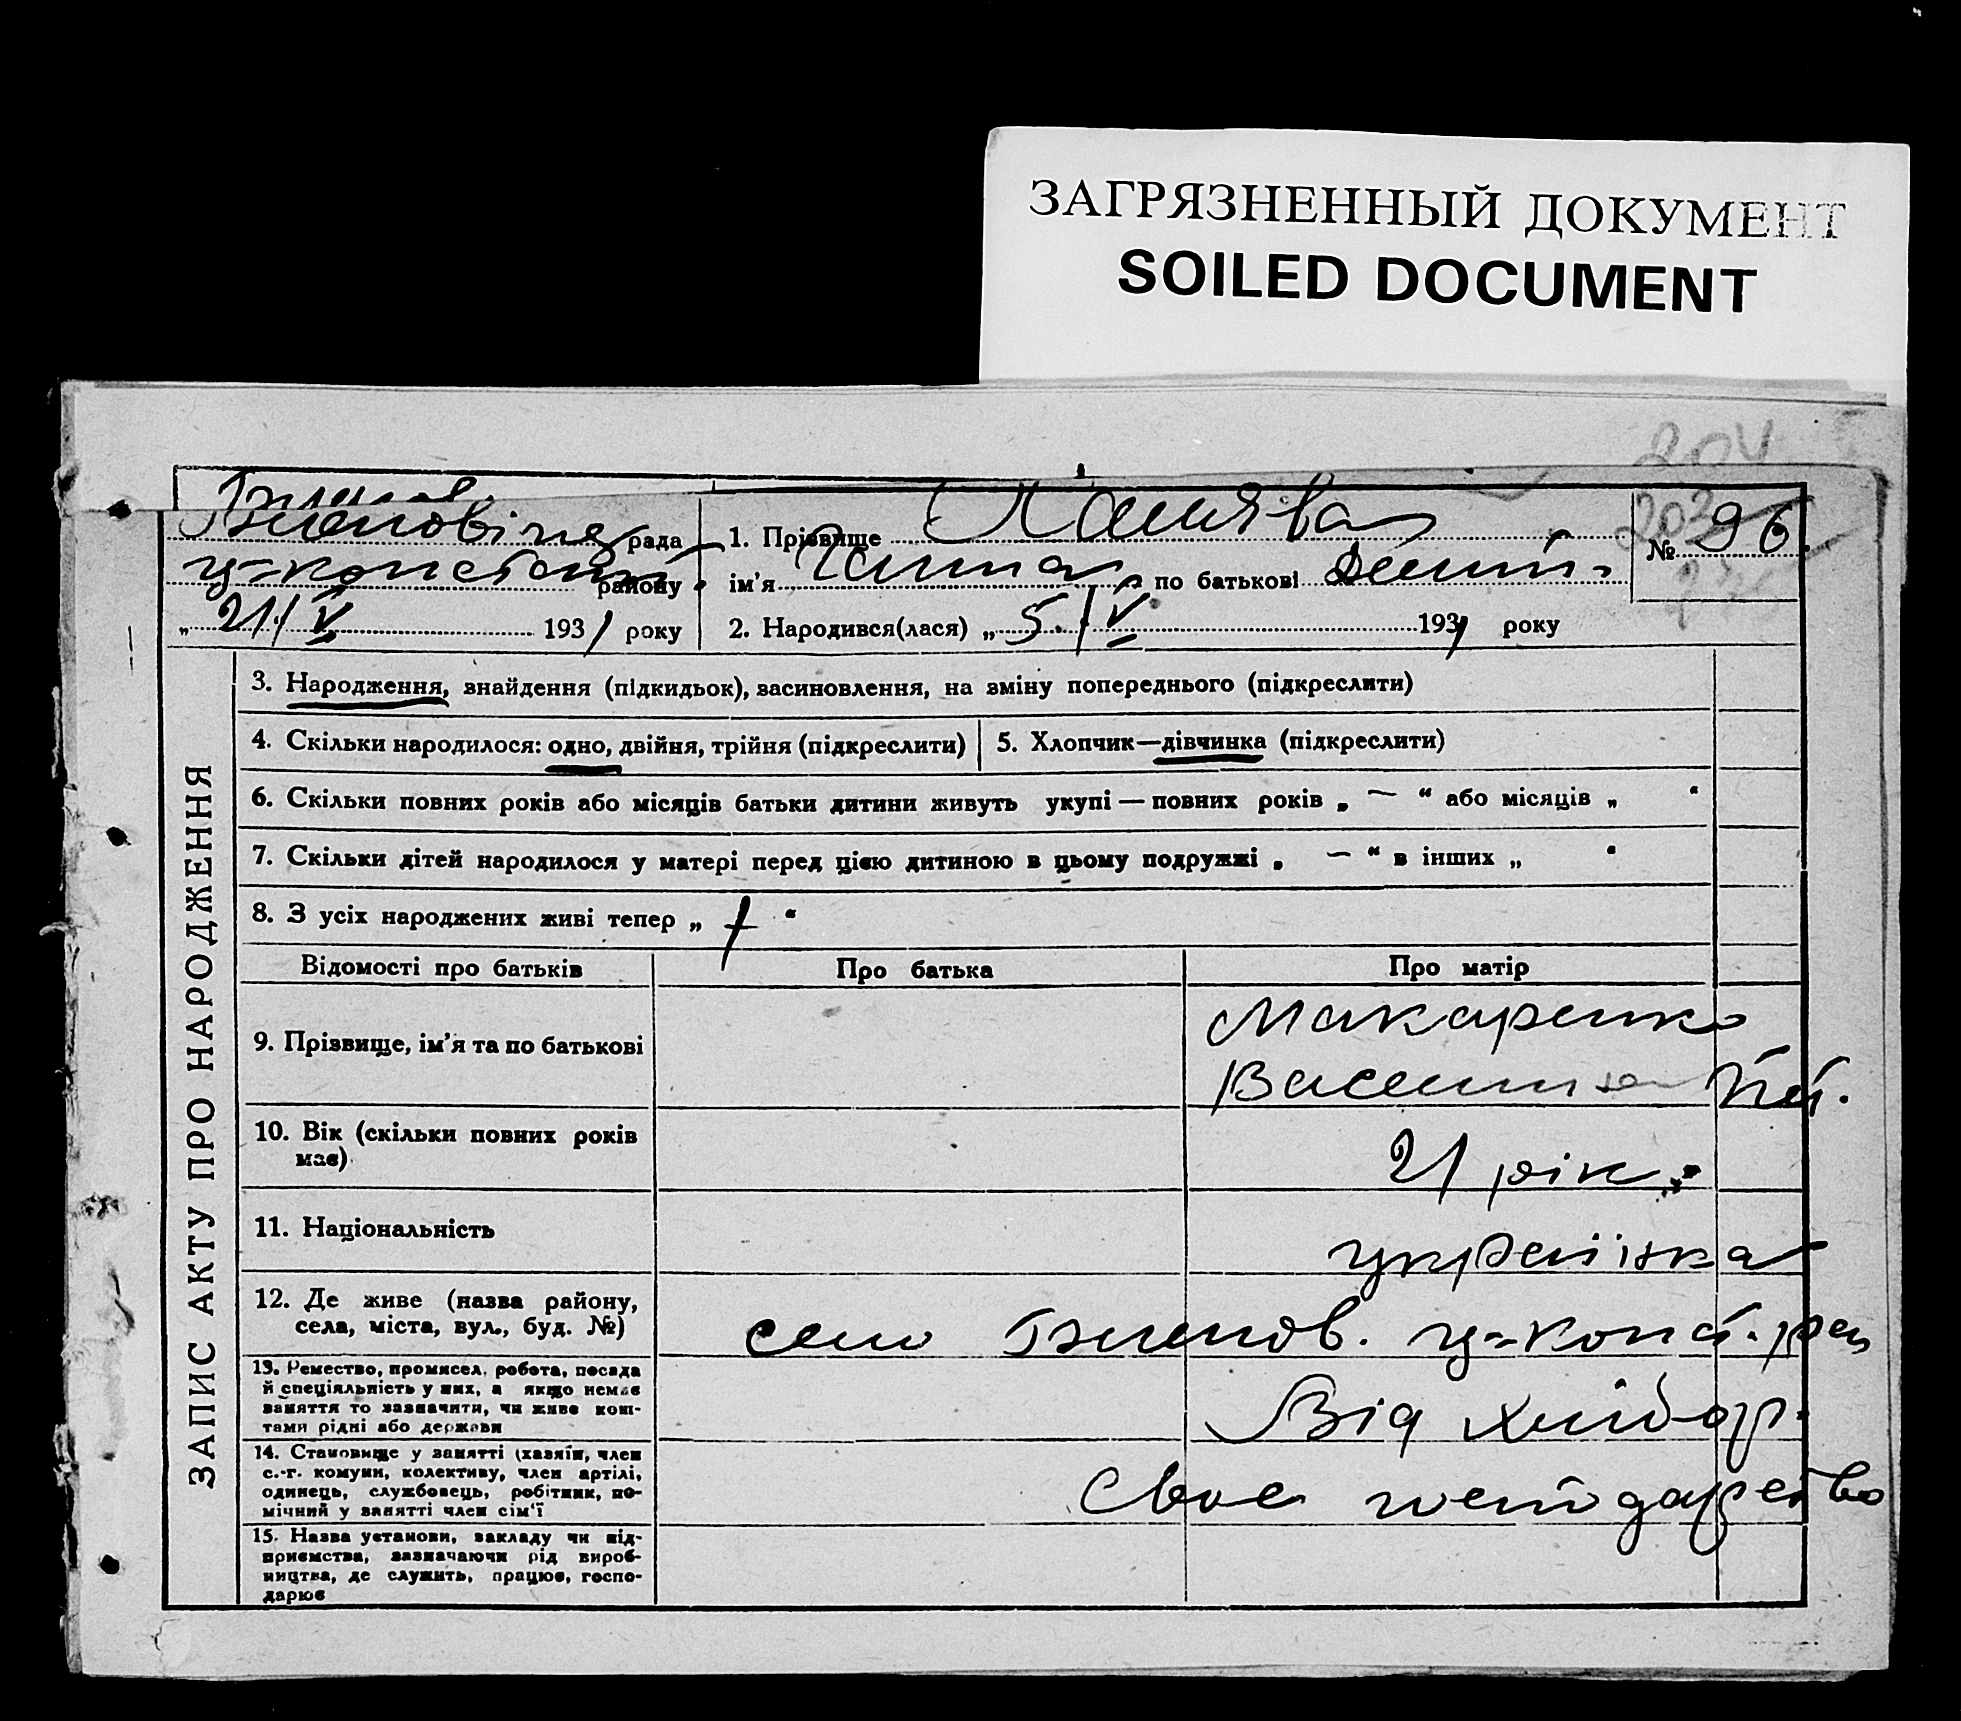 ЗАГРЯЗНЕННЫЙ ДОКУМЕНТ
SOILED DOCUMENT
204
203
рада
району
„21/V 1931 року
1. Прізвище
ім'я Ганна по батькові
№ 96.
2. Народився(лася) „5./V 1931 року
ЗАПИС АКТУ ПРО НАРОДЖЕННЯ
3. Народження, знайдення (підкидьок), засиновлення, на зміну попереднього (підкреслити)
4. Скільки народилося: одно, двійня, трійня (підкреслити)
5. Хлопчик—дівчинка (підкреслити)
6. Скільки повних років або місяців батьки дитини живуть укупі — повних років „ — “ або місяців „ “
7. Скільки дітей народилося у матері перед цією дитиною в цьому подружжі „ — “ в інших „ “
8. З усіх народжених живі тепер „ 1 “
Відомості про батьків
Про батька
Про матір
9. Прізвище, ім'я та по батькові
Макаренко
10. Вік (скільки повних років має)
21 рік
11. Національність
українка
12. Де живе (назва району,
села, міста, вул., буд. №)
село
13. Ремество, промисел, робота, посада
й спеціяльність у них, а якщо немає
заняття то зазначити, чи живе кош-
тами рідні або держави
Від хлібор.
14. Становище у занятті (хазяїн, член
с.-г. комуни, колективу, член артілі,
одинець, службовець, робітник, по-
мічний у занятті член сім'ї
Своє
15. Назва установи, закладу чи під-
приємства, зазначаючи рід вироб-
ництва, де служить, працює, госпо-
дарює